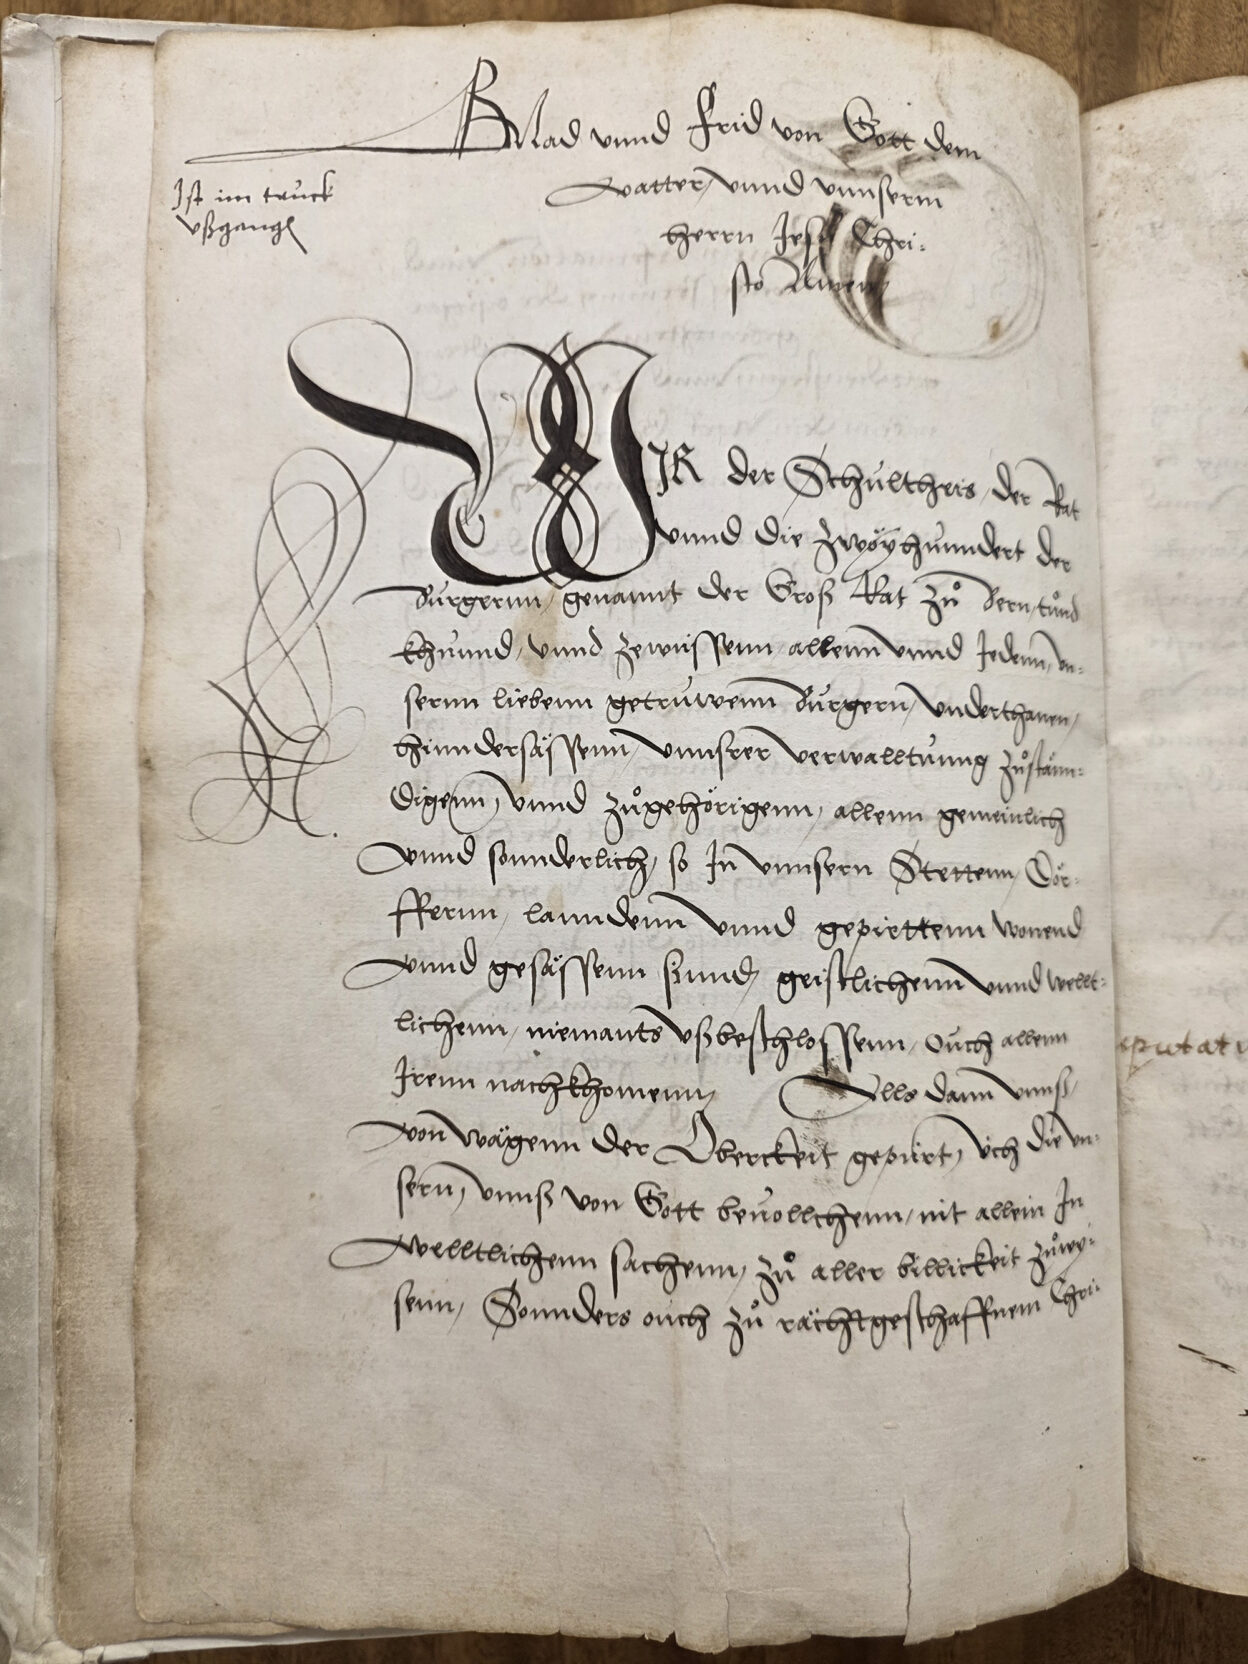 Gnad vnnd Frid von Gott dem
vatter, vnnd vnnserm
herrn Jesu Chri-
sto Amen,
Ist im truck
vßgangen
WJR der Schultheis, der Rat
vnnd die zwöyhunndert der
Burgernn, genannt der Groß Rat zů Bern, tůnd
khunnd, vnnd zewüssenn, allenn vnnd Jedenn, vn-
sernn liebenn getruwenn Burgern, vnderthanen,
hinndersässenn, vnnsrer verwalltung zůstänn-
digenn, vnnd zůgehörigenn, allenn gemeinlich
vnnd sonnderlich, so Jn vnnsern Stettenn, Dör-
ffernn, lanndenn vnnd gepiettenn wonend
vnnd gesässenn sinnd, geistlichenn vnnd wellt-
lichenn, niemants vßbeschlossenn, ouch allenn
Jrenn nachkhomenn, Alls dann vnnß,
von wägenn der Oberckeit gepürt, üch die vn-
sern, vnnß von Gott beuollchenn, nit allein Jn
welltlichenn sachenn, zů aller billickeit zůwy-
senn, Sonnders ouch zů rächtgeschaffnem Chri